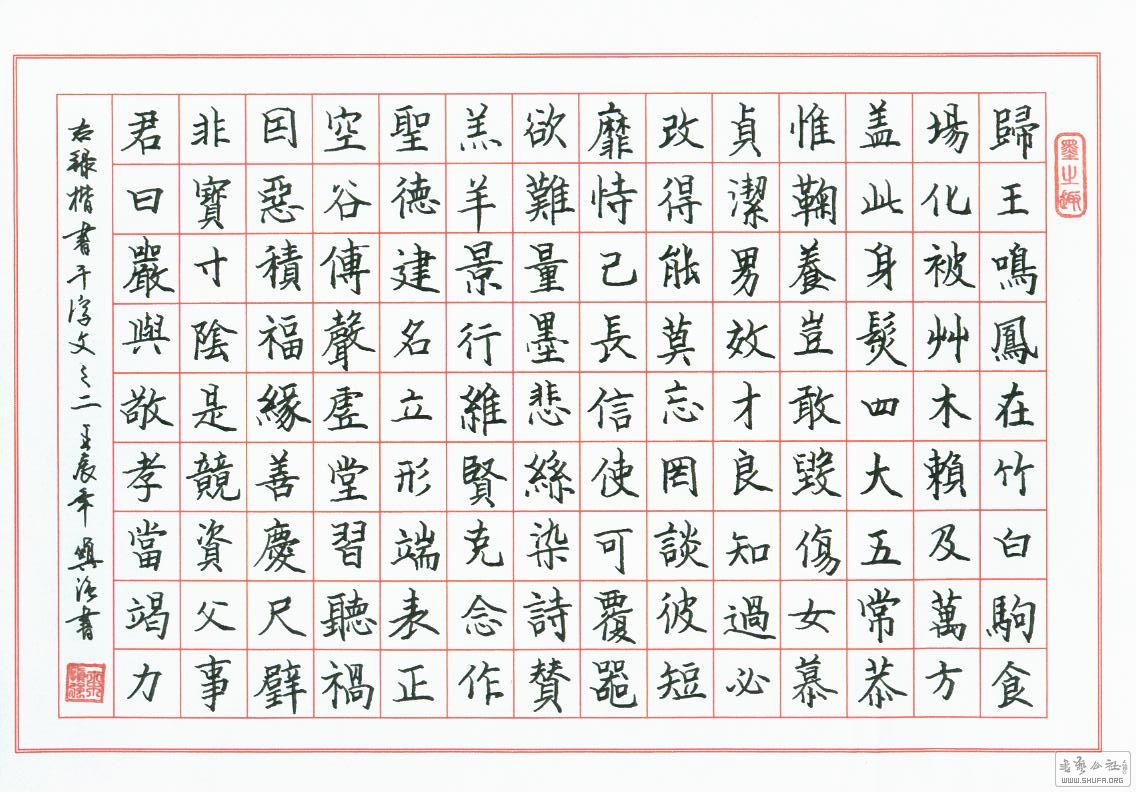 墨之趣
歸王鳴鳳在竹白駒食
場化被艸木賴及萬方
盖此身髮四大五常恭
惟鞠養豈敢毀傷女慕
貞潔男效才良知過必
改得能莫忘罔談彼短
靡恃己長信使可覆器
欲難量墨悲絲染詩賛
羔羊景行維賢克念作
聖德建名立形端表正
空谷傳聲虗堂習聽禍
因惡積福緣善慶尺璧
非寶寸陰是競資父事
君曰嚴與敬孝當竭力
右録楷書千字文之二 壬辰年 興書
书艺公社
WWW.SHUFA.ORG